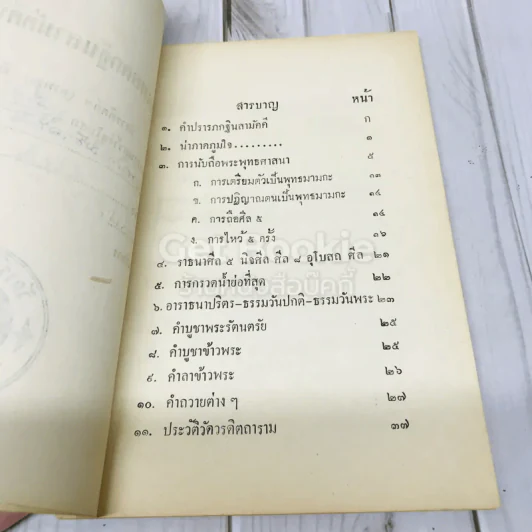 สารบาญ หน้า
๑. คำปรารภกฐินสามัคคี ก
๒. น่าภาคภูมิใจ......... ๑
๓. การนับถือพระพุทธศาสนา ๕
ก. การเตรียมตัวเป็นพุทธมามกะ ๑๓
ข. การปฏิญาณตนเป็นพุทธมามกะ ๑๔
ค. การถือศีล ๕ ๑๔
ง. การไหว้ ๕ ครั้ง ๑๖
๔. ราธนาศีล ๕ นิจศีล ศีล ๘ อุโบสถ ศีล ๒๑
๕. การกรวดน้ำย่อที่สุด ๒๒
๖. อาราธนาปริตร-ธรรมวันปกติ-ธรรมวันพระ ๒๓
๗. คำบูชาพระรัตนตรัย ๒๕
๘. คำบูชาข้าวพระ ๒๕
๙. คำลาข้าวพระ ๒๖
๑๐. คำถวายต่าง ๆ ๒๗
๑๑. ประวัติวัดวรดิตถาราม ๓๗
Get Bookie
ร้านหนังสือบุ๊คกี้